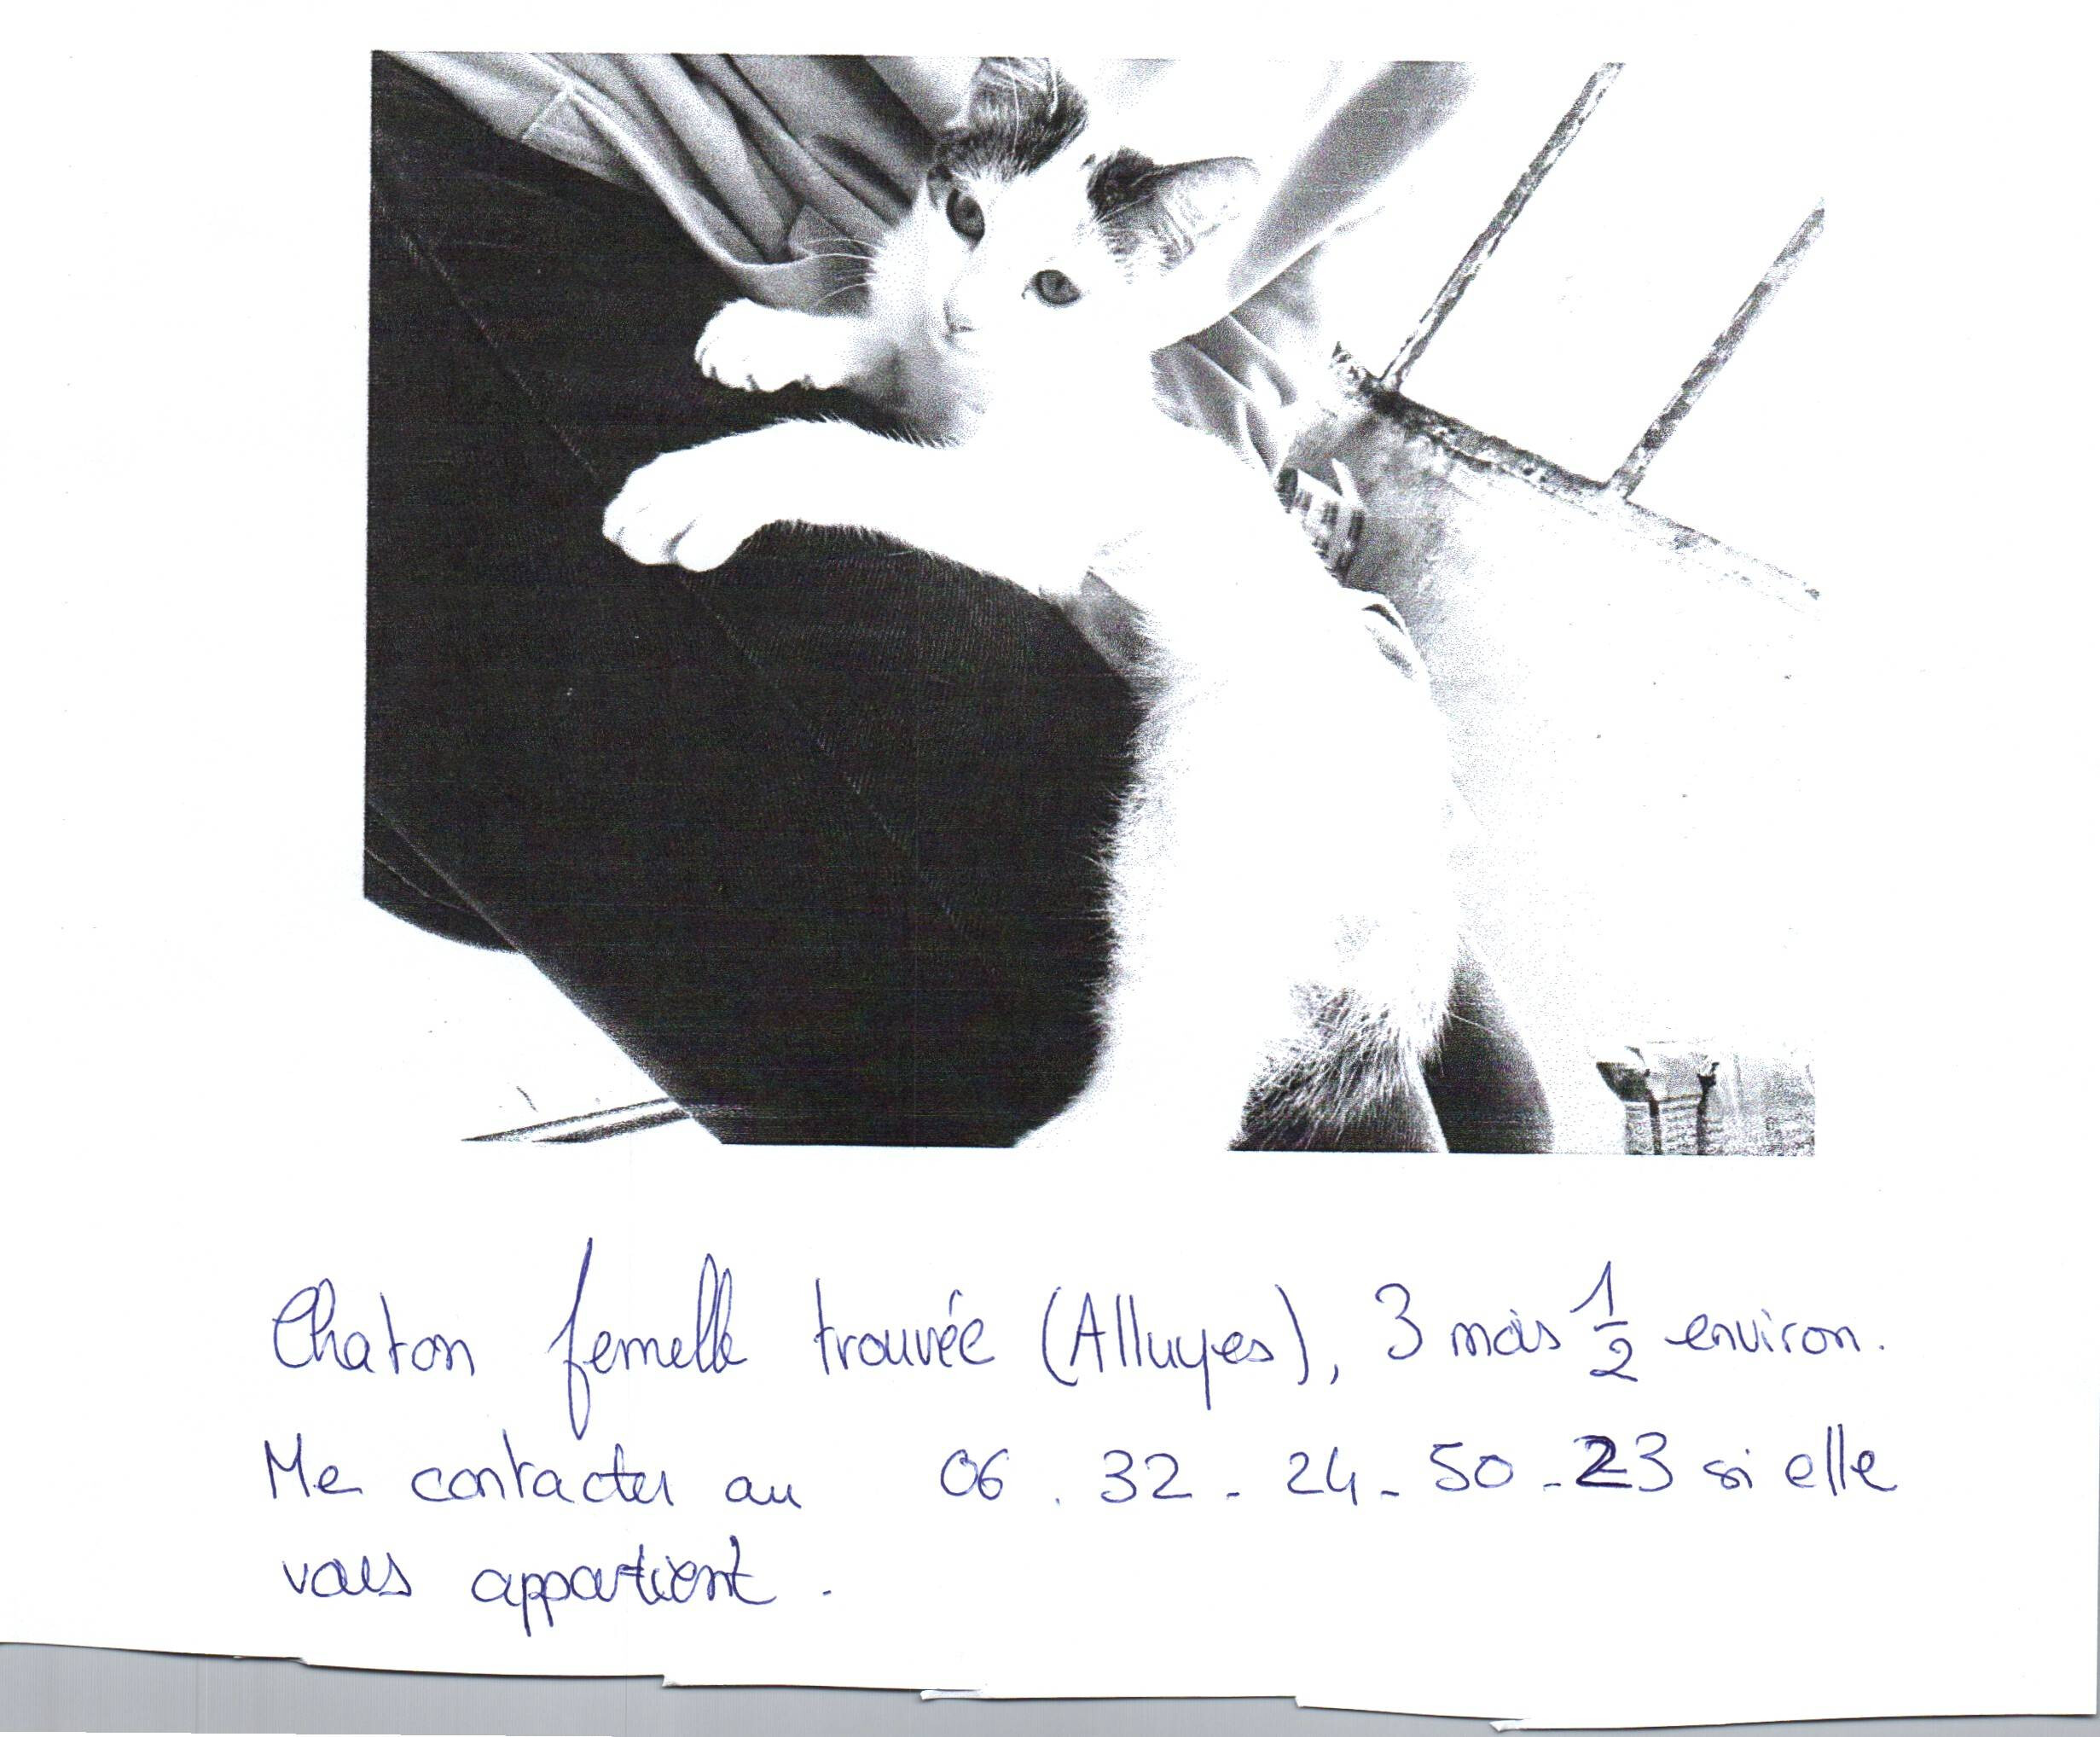 Chaton femelle trouvée (Alluyes), 3 mois 1/2 environ.
Me contacter au 06.32-24-50-23 si elle
vous appartient.